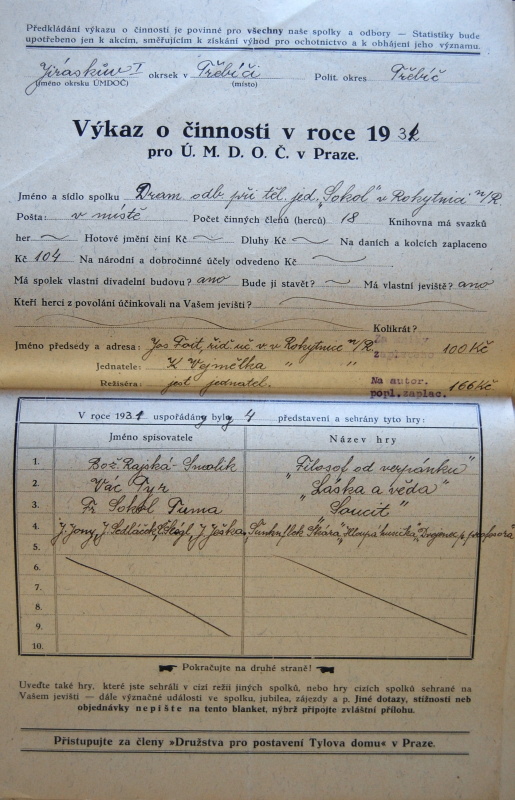 Předkládání výkazu o činnosti je povinné pro všechny naše spolky a odbory — Statistiky bude
upotřebeno jen k akcím, směřujícím k získání výhod pro ochotnictvo a k obhájení jeho významu.
Jiráskův I okrsek v Třebíči Polit. okres Třebíč
(jméno okrsku ÚMDOČ) (místo)
Výkaz o činnosti v roce 1931
pro Ú. M. D. O. Č. v Praze.
Jméno a sídlo spolku Dram. odb. při těl. jed. „Sokol" v Rokytnici n/R.
Pošta: v místě Počet činných členů (herců) 18 Knihovna má svazků
her Hotové jmění činí Kč Dluhy Kč Na daních a kolcích zaplaceno
Kč 104 Na národní a dobročinné účely odvedeno Kč
Má spolek vlastní divadelní budovu? ano Bude ji stavět? Má vlastní jeviště? ano
Kteří herci z povolání účinkovali na Vašem jevišti?
Kolikrát?
Jméno předsedy a adresa: Jos Foit, říd. uč. v. v. Rokytnice n/R
zaplaceno 100 Kč
Jednatele: K Vejmělka " "
Režiséra: jest jednatel.
Na autor. popl. zaplac. 166 Kč
V roce 1931 uspořádány byly 4 představení a sehrány tyto hry:
Jméno spisovatele Název hry
1. Bož. Rajská-Smolík „Filosof od verpánku"
2. Vác Tyr „Láska a věda"
3. Fr Sokol Tuma „Soucit"
4. J. Jony, J. Sedláček, J Joška
5.
6.
7.
8.
9.
10.
Pokračujte na druhé straně!
Uveďte také hry, které jste sehráli v cizí režii jiných spolků, nebo hry cizích spolků sehrané na
Vašem jevišti — dále význačné události ve spolku, jubilea, zájezdy a p. Jiné dotazy, stížnosti neb
objednávky nepište na tento blanket, nýbrž připojte zvláštní přílohu.
Přistupujte za členy »Družstva pro postavení Tylova domu« v Praze.